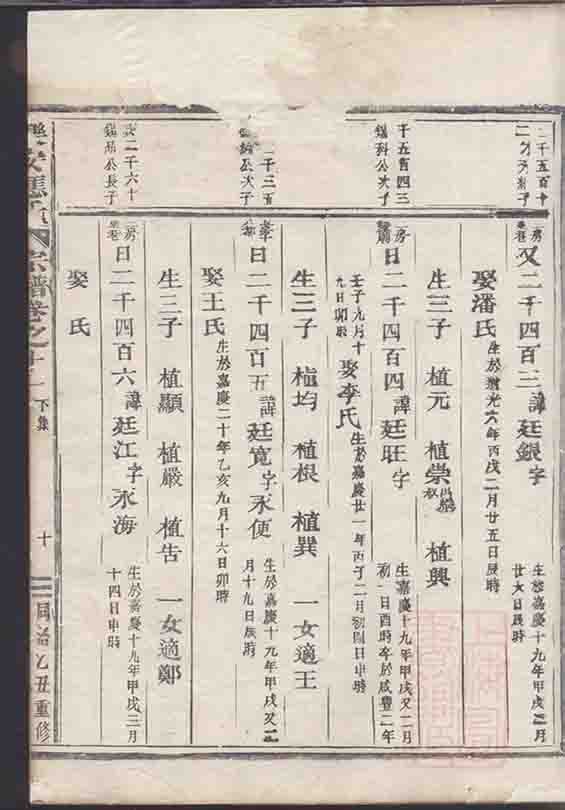 二千五百十
次子
房
又二千四百三諱廷銀字
生於嘉慶十九年甲戌三月
廿六日辰時
娶潘氏
生於道光六年丙戌二月廿五日辰時
生三子 植元 植崇 植興
千五百四三
鎰科公次子
房
日二千四百四諱廷旺字
生嘉慶十九年甲戌又二月
初一日酉時卒於咸豐二年
壬子九月十
九日卯時
娶李氏
生於嘉慶廿一年丙子二月初四日申時
生三子 植均 植根 植巽 一女適王
千三百
公次子
日二千四百五諱廷寬字永便
生於嘉慶十九年甲戌又二
月十九日辰時
娶王氏
生於嘉慶二十年乙亥九月十六日卯時
生三子 植顯 植嚴 植吿 一女適鄭
二千六十
公長子
房
日二千四百六諱廷江字永海
生於嘉慶十九年甲戌三月
十四日申時
娶 氏
宗譜卷之十
下集
十
同治乙丑重修